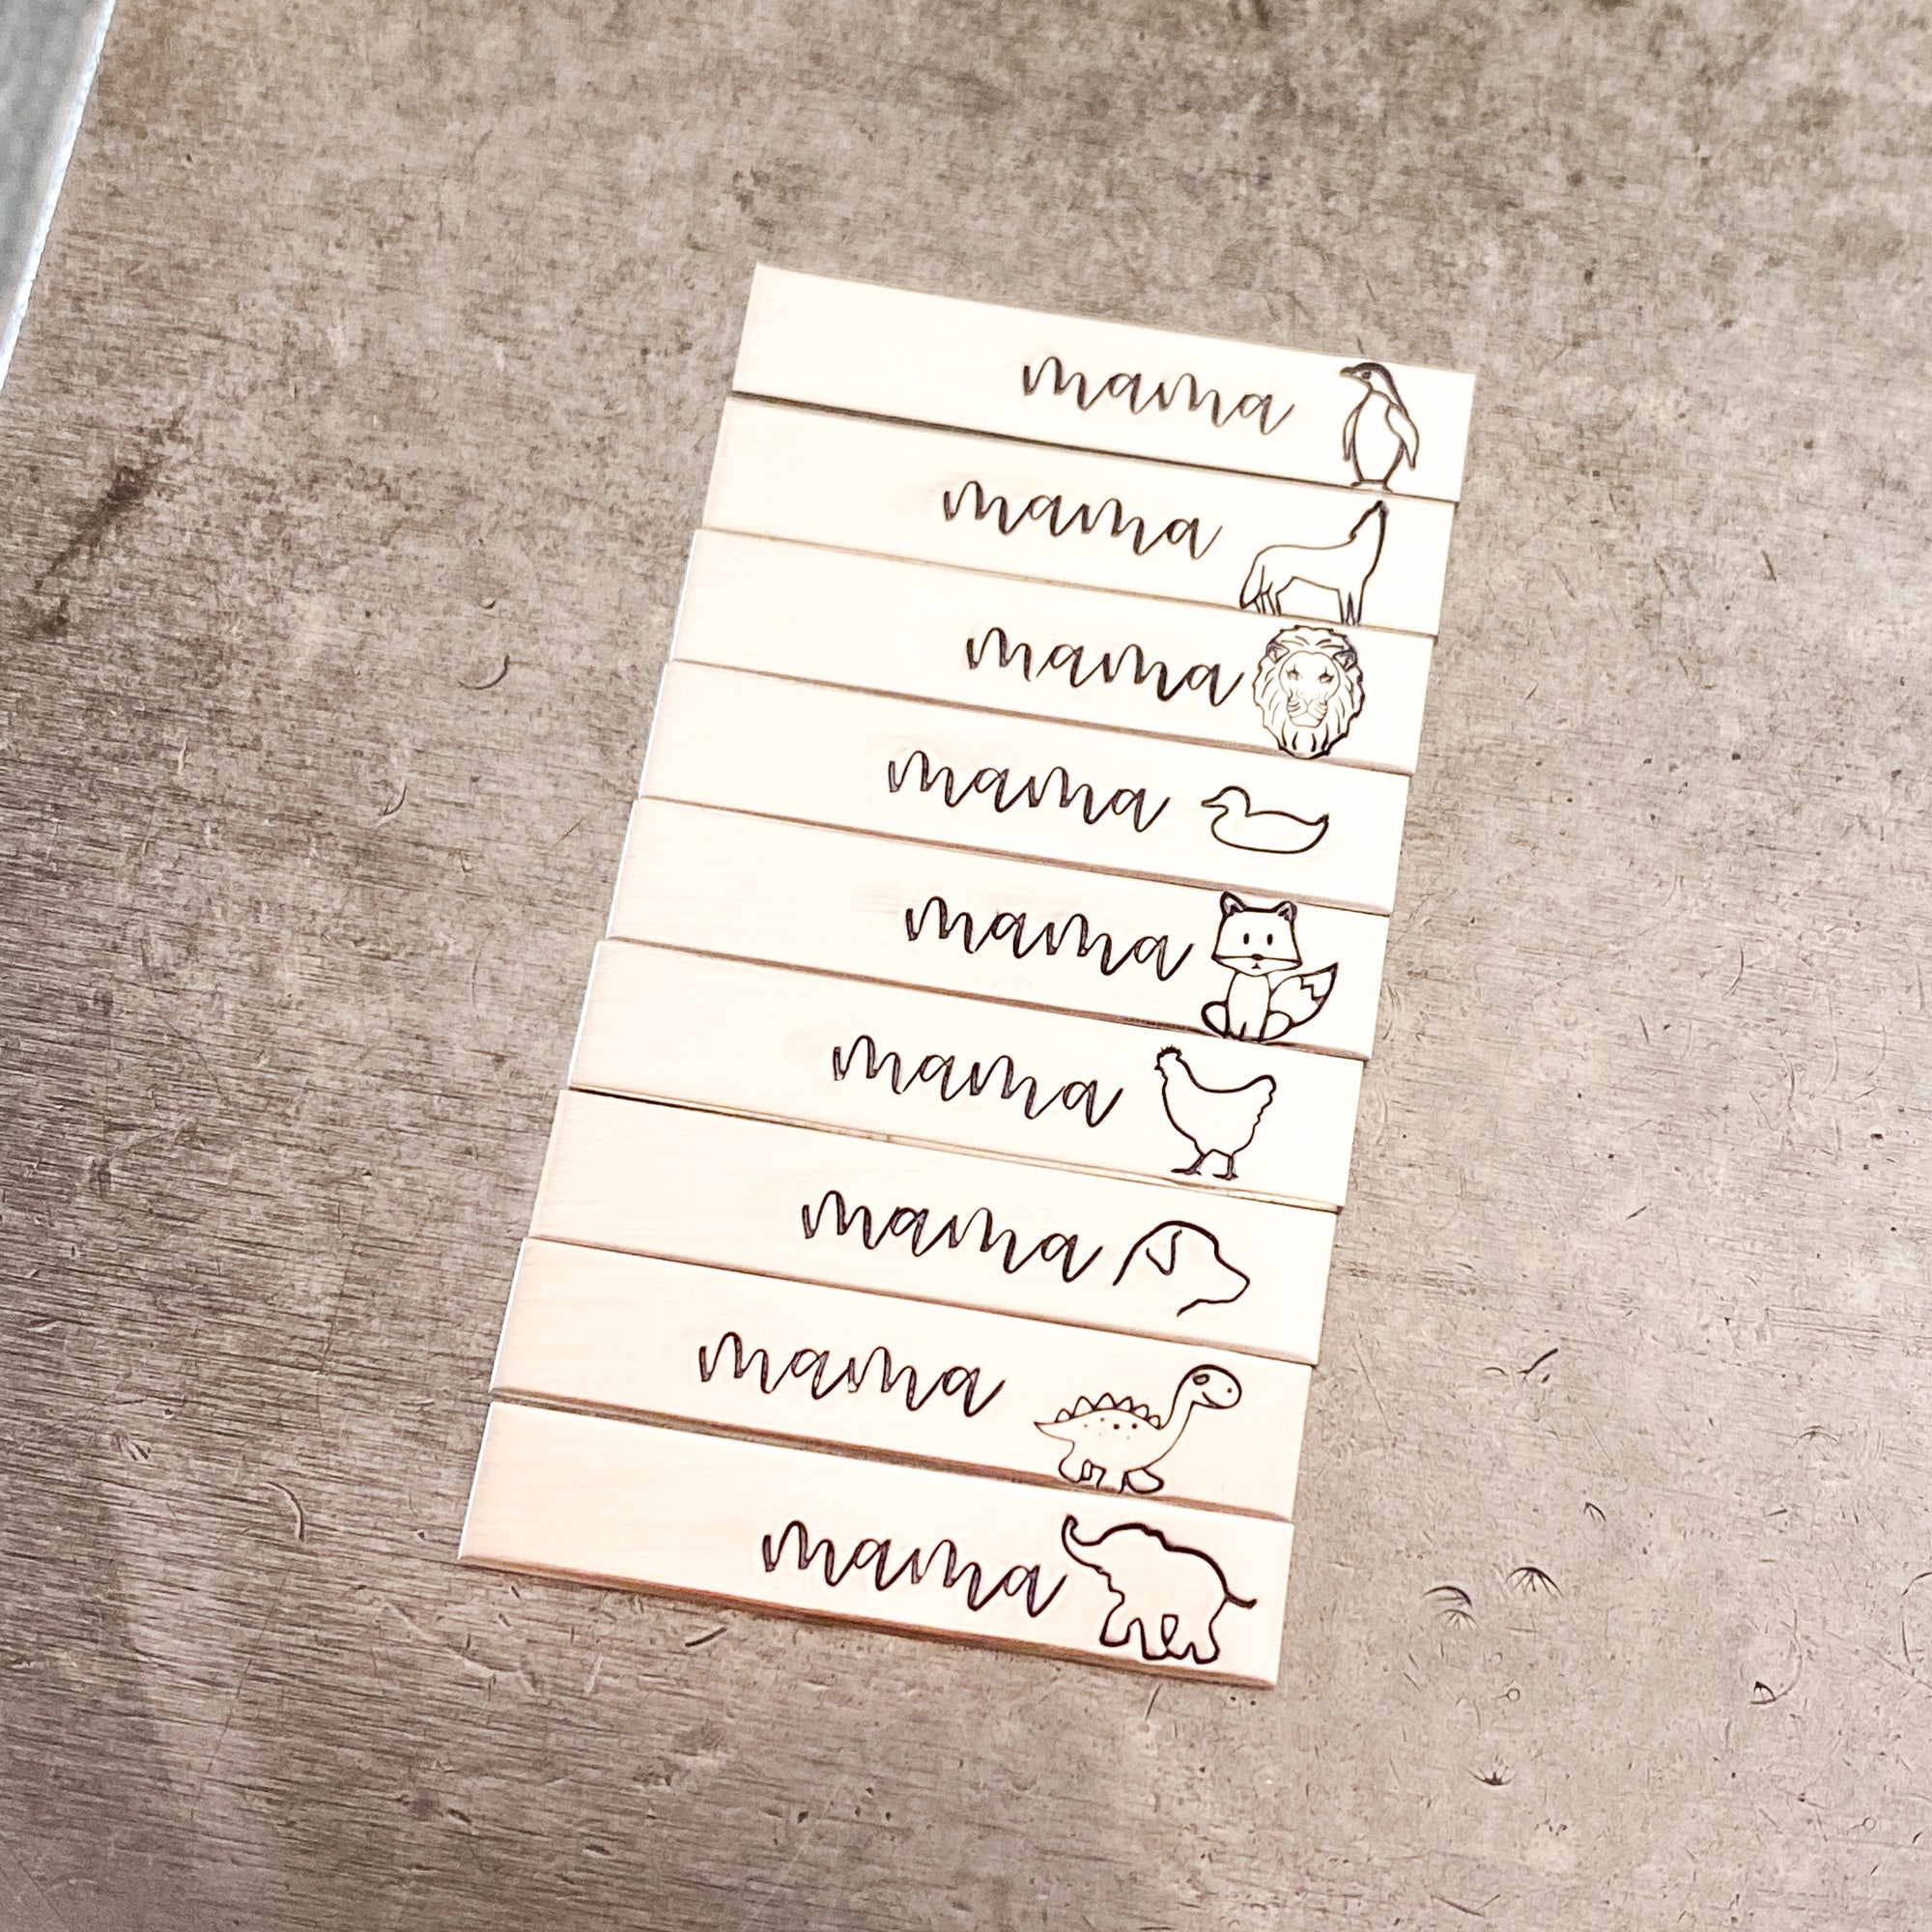 mama
mama
mama
mama
mama
mama
mama
mama
mama